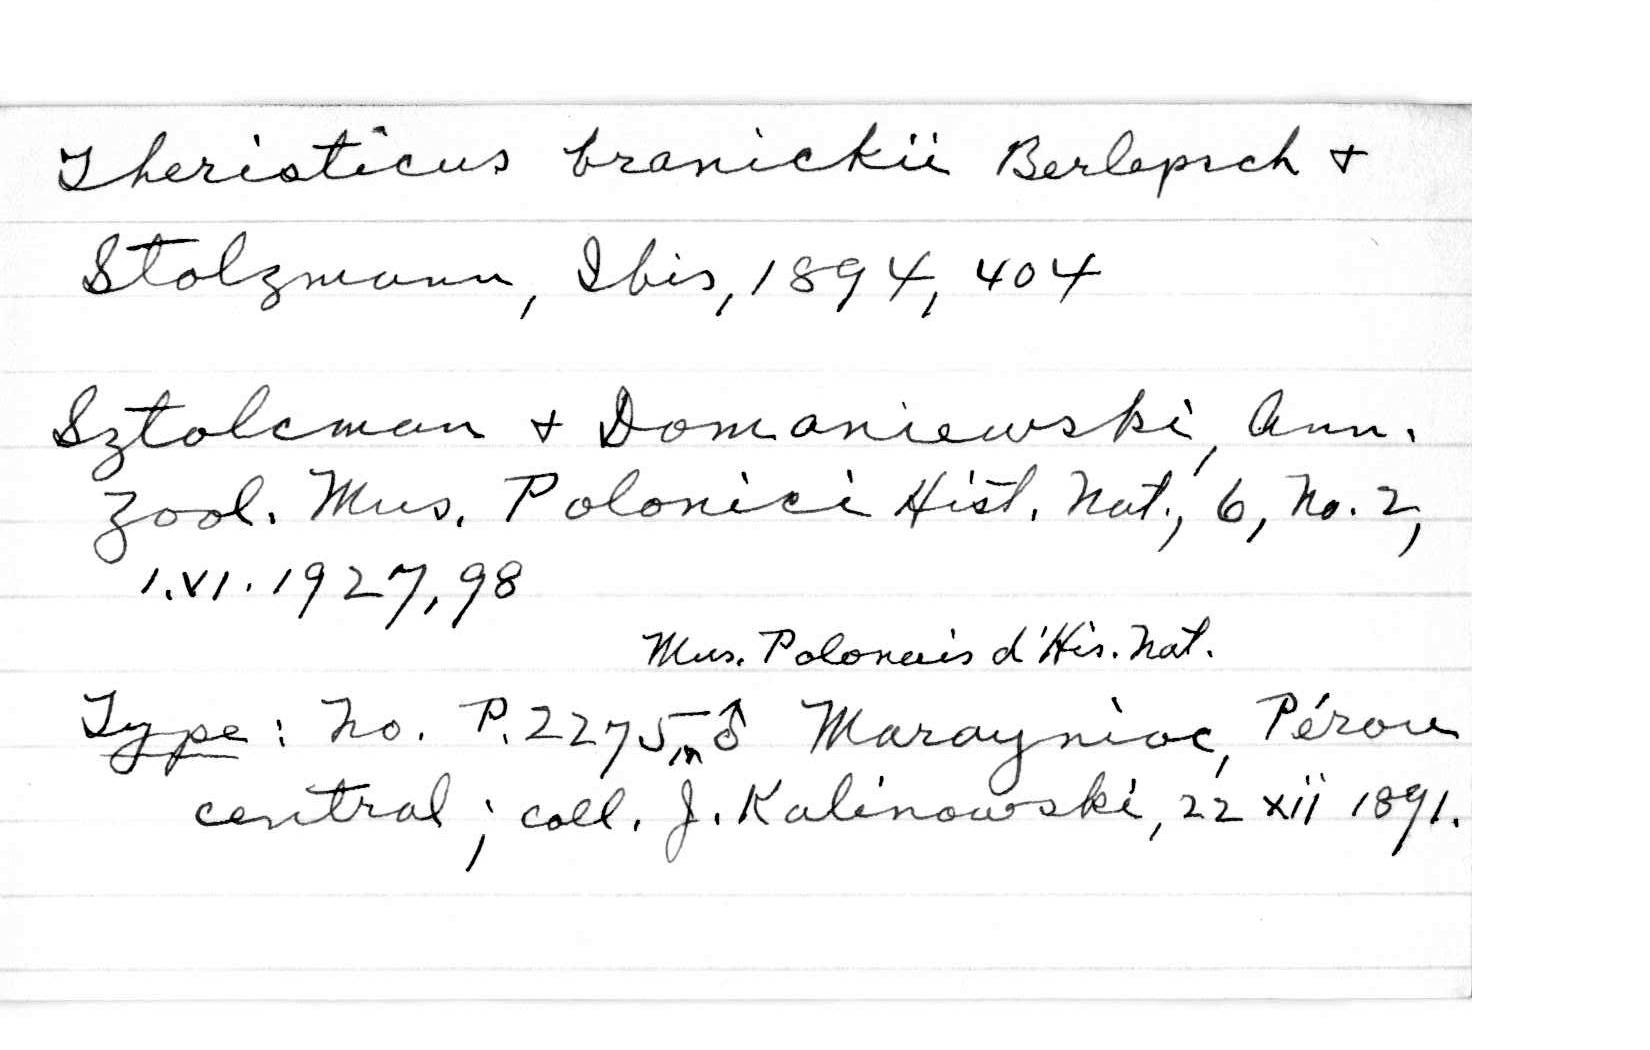 Theristicus branickii Berlepsch &
Stolzmann, Ibis, 1894, 404
Sztolcman & Domaniewski, Ann.
Zool. Mus. Polonici Hist. Nat., 6, No. 2,
1.VI.1927, 98
Mus. Polonais d'His. Nat.
Type: No. P. 2275, ♂ Maraynioc, Pérou
central; coll. J. Kalinowski, 22 xii 1891.